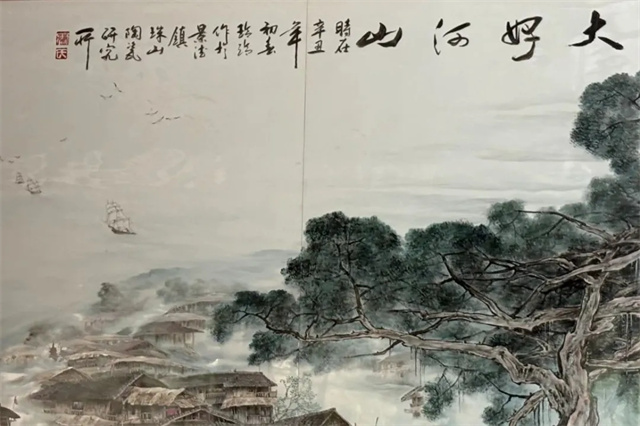 大好河山
時在
辛丑
年
初春
作於
景德
鎮
珠山
陶瓷
研究
所